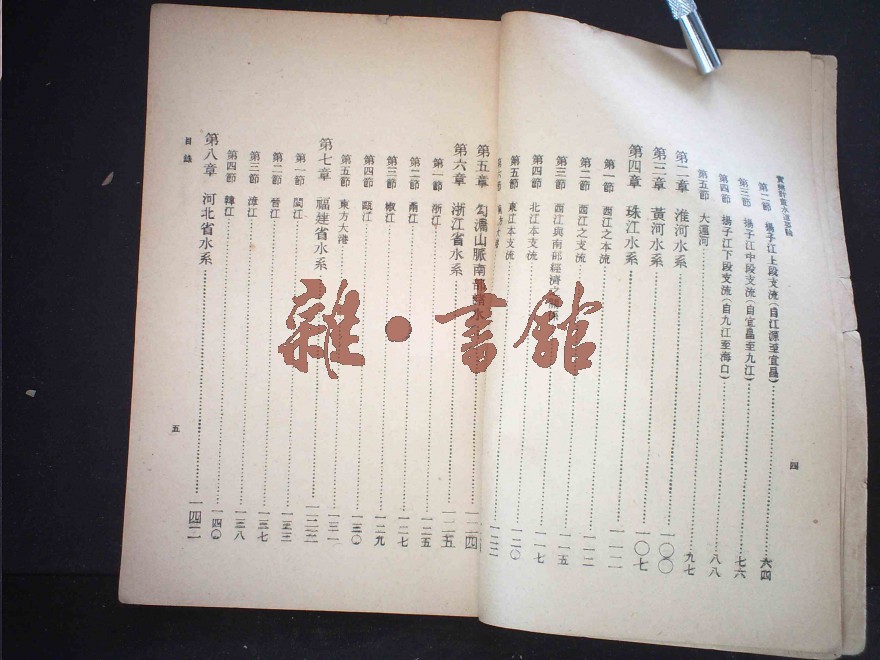 實業計畫水道要論
第二節 揚子江上段支流(自江源至宜昌)……六四
第三節 揚子江中段支流(自宜昌至九江)……七六
第四節 揚子江下段支流(自九江至海口)……八八
第五節 大運河……九七
第二章 淮河水系……一〇〇
第三章 黃河水系……一〇七
第四章 珠江水系……一一一
第一節 西江之本流……一一一
第二節 西江之支流……一一二
第三節 西江與南部經濟之關係……一一五
第四節 北江本支流……一一七
第五節 東江本支流……一二〇
第六節……一二二
四
第五章 勾漏山脈南部諸水
第六章 浙江省水系……一二四
第一節 浙江……一二五
第二節 甬江……一二五
第三節 椒江……一二七
第四節 甌江……一二九
第五節 東方大港……一三〇
第七章 福建省水系……一三二
第一節 閩江……一三三
第二節 晉江……一三七
第三節 漳江……一三八
第四節 韓江……一四〇
第八章 河北省水系……一四二
目錄
五
雜·書館